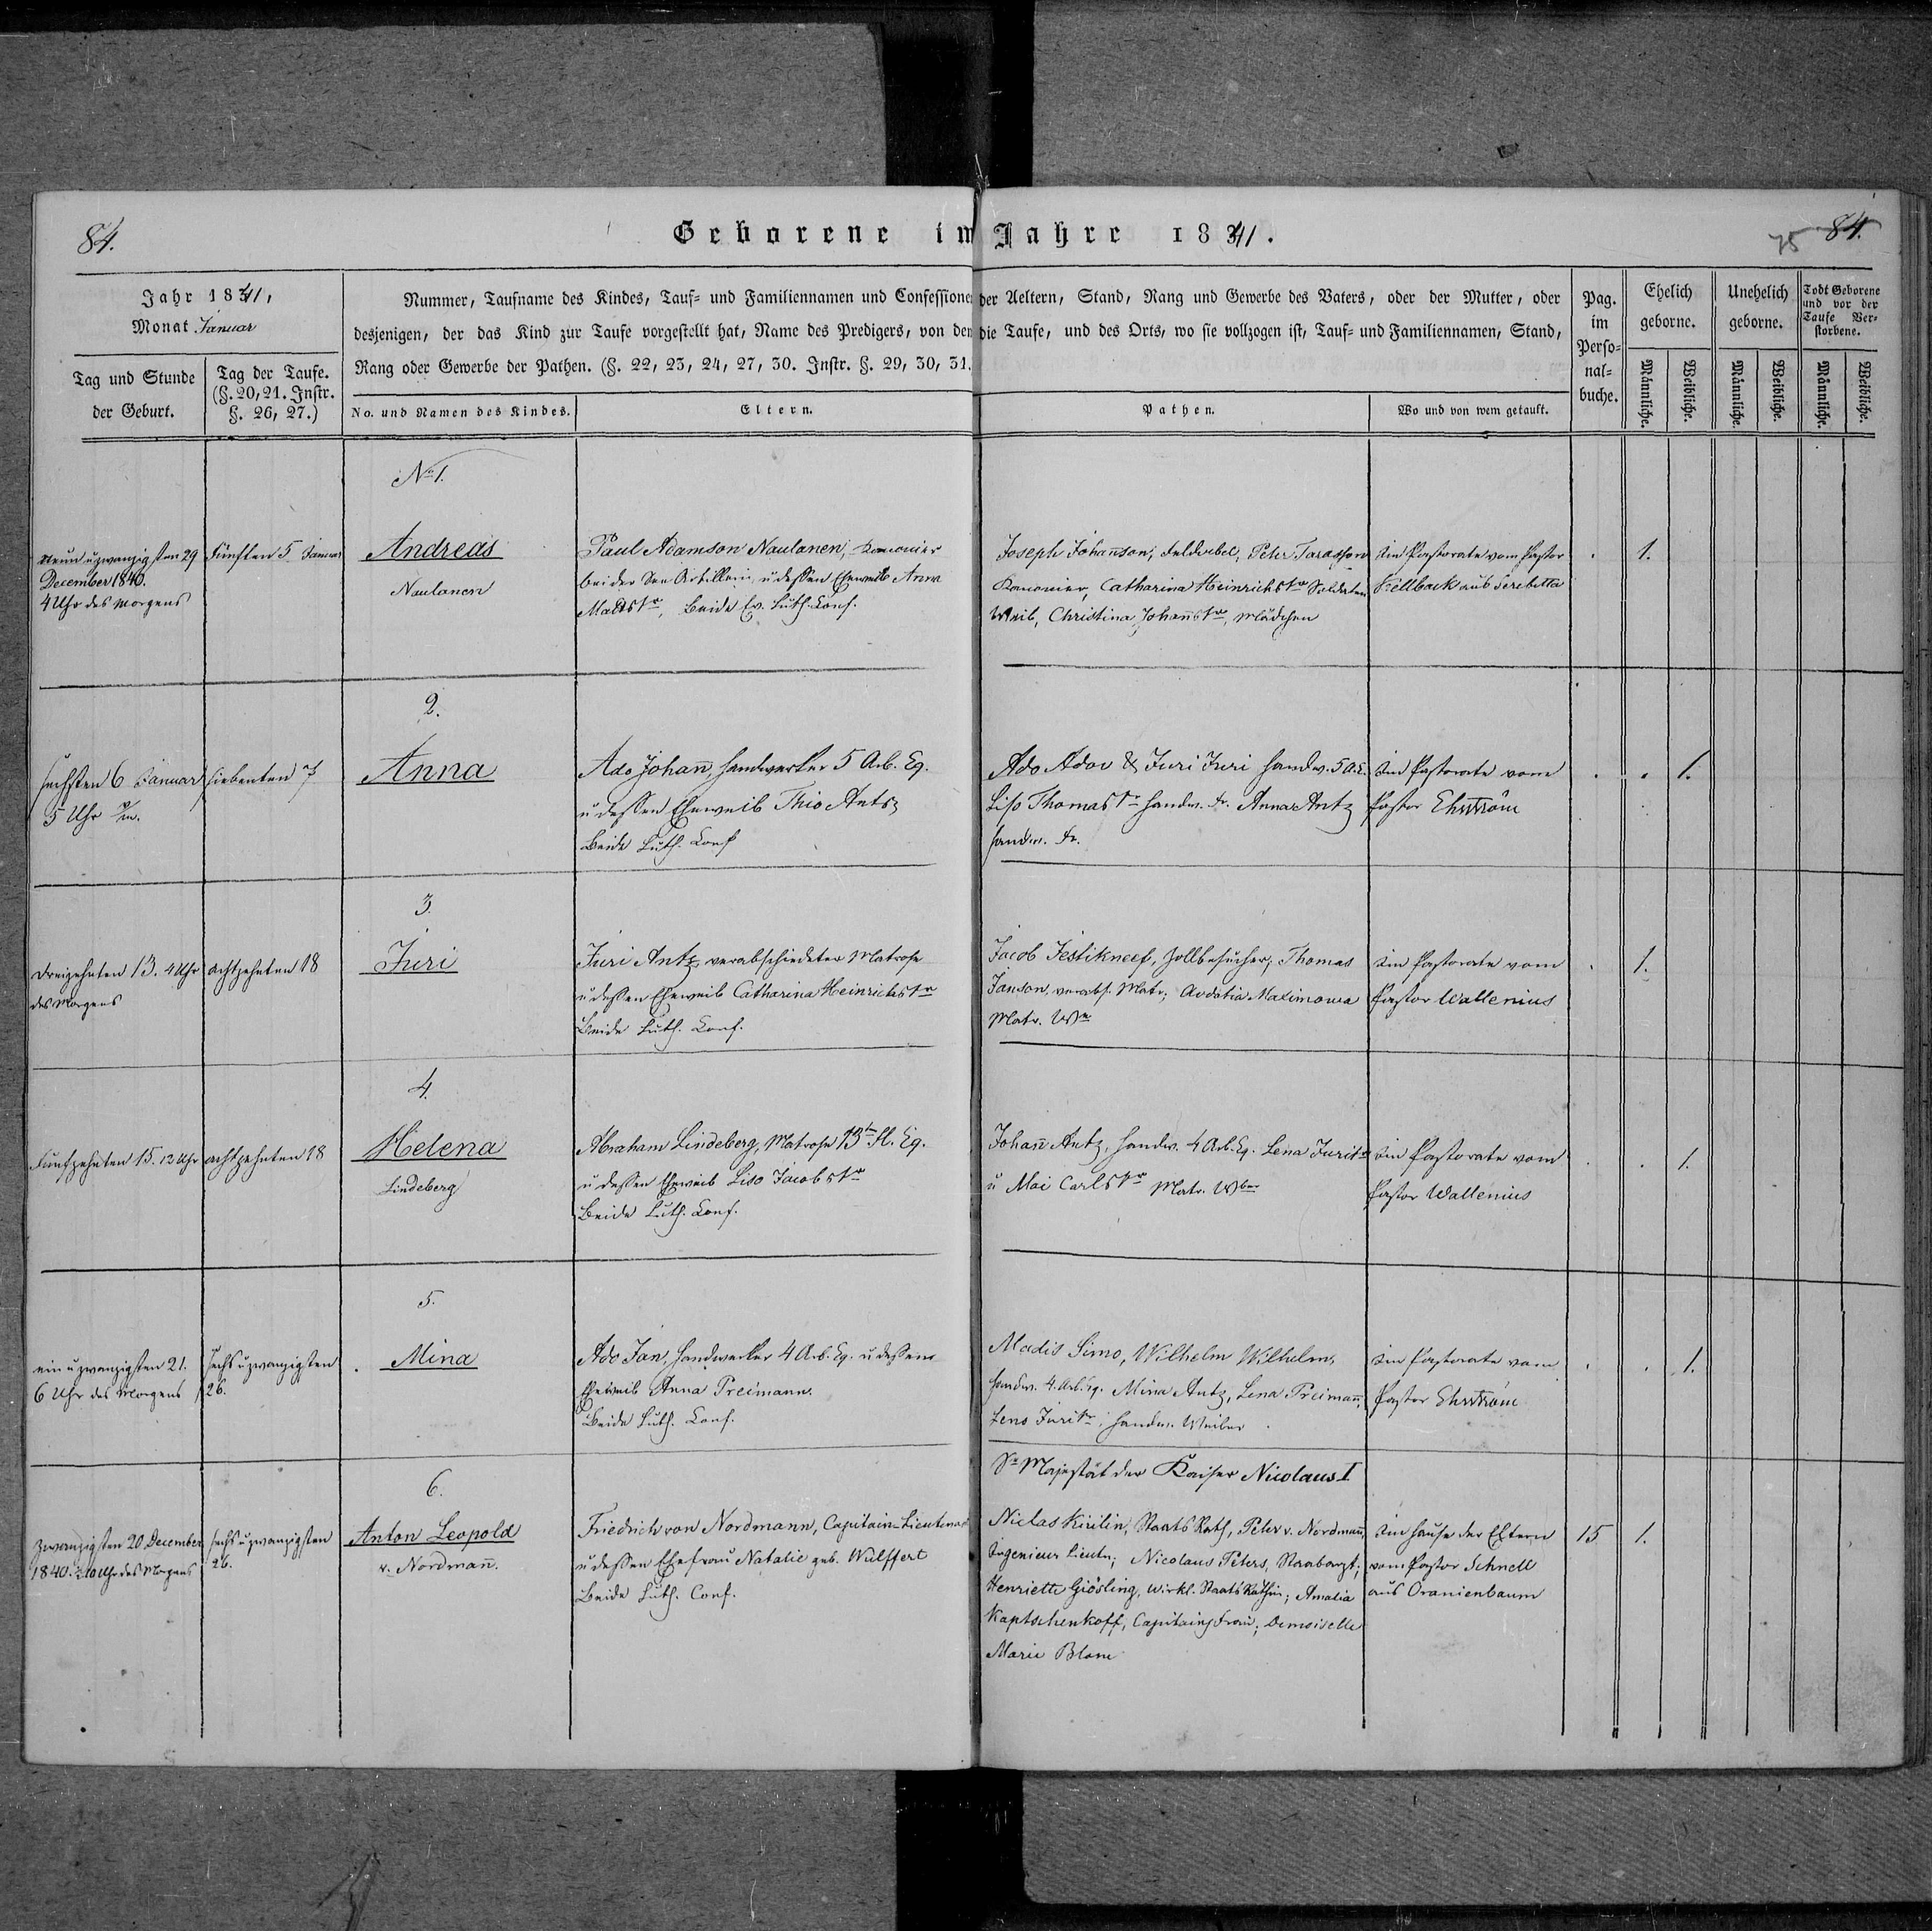 84.
Geborene im Jahre 1841.
75 84.
Jahr 1841,
Monat Januar
Tag und Stunde
der Geburt.
Tag der Taufe.
(§. 20, 21. Instr.
§. 26, 27.)
Nummer, Taufname des Kindes, Tauf- und Familiennamen und Confessionen der Aeltern, Stand, Rang und Gewerbe des Vaters, oder der Mutter, oder
desjenigen, der das Kind zur Taufe vorgestellt hat, Name des Predigers, von dem die Taufe, und des Orts, wo sie vollzogen ist, Tauf- und Familiennamen, Stand,
Rang oder Gewerbe der Pathen. (§. 22, 23, 24, 27, 30. Instr. §. 29, 30, 31.
No. und Namen des Kindes.
Eltern.
Pathen.
Wo und von wem getauft.
Pag.
im
Perso-
nal-
buche.
Ehelich
geborne.
Unehelich
geborne.
Todt Geborene
und vor der
Taufe Ver-
storbene.
Männliche.
Weibliche.
Männliche.
Weibliche.
Männliche.
Weibliche.
No 1.
Neun u zwanzigsten 29
December 1840.
4 Uhr des Morgens
Fünften 5 Januar
Andreas
Naulanen
Paul Adamson Naulanen, Kanonier
bei der See Artillerie, u dessen Eheweib Anna
Mattstr, Beide Ev. Luth. Conf.
Joseph Johanson, Feldwebel, Peter Tarasson
Kanonier, Catharina Heinrichstr Soldaten
Weib, Christina Johanstr, Mädchen
Im Pastorate vom Pastor
Sellback aus Serebetta
1.
2.
sechsten 6 Januar
5 Uhr
siebenten 7
Anna
Ado Johan, Handwerker 5 Arb. Eq.
u dessen Eheweib Thio Antz
Beide Luth. Conf
Ado Adov & Juri Juri Handw. 5 A.E.
Liso Thomastr Handw. Fr. Anna Antz
Handw. Fr.
Im Pastorate vom
Pastor Ehrström
1.
3.
Dreizehnten 13. 4 Uhr
des Morgens
achtzehnten 18
Juri
Juri Antz, verabschiedeter Matrose
u dessen Eheweib Catharina Heinrichstr
Beide Luth. Conf.
Jacob Jestikneef, Zollbesucher, Thomas
Janson, verabs. Matr; Avdotia Maximowa
Matr. We
Im Pastorate vom
Pastor Wallenius
1.
4.
Fünfzehnten 15. 12 Uhr
achtzehnten 18
Helena
Lindeberg
Abraham Lindeberg, Matrose 13tn Fl. Eq.
u dessen Eheweib Liso Jacobstr
Beide Luth. Conf.
Johan Antz, Handw. 4 Arb. Eq. Lena Juritr
u Mai Carlstr Matr. Wber
Im Pastorate vom
Pastor Wallenius
1.
5.
ein u zwanzigsten 21.
6 Uhr des Morgens
sechs u zwanzigsten
26.
Mina
Ado Jan, Handwerker 4 Arb. Eq. u dessen
Eheweib Anna Preimann.
Beide Luth. Conf.
Madis Simo, Wilhelm Wilhelm,
Handw. 4. Arb. Eq. Mina Antz, Lena Preiman,
Leno Juritr, Handw. Weiber
Im Pastorate vom
Pastor Ehrström
1.
6.
zwanzigsten 20 December
1840. Uhr des Morgens
sechs u zwanzigsten
26.
Anton Leopold
v. Nordman.
Friedrich von Nordmann, Capitain-Lieutenant
u dessen Ehefrau Natalie geb. Wulffert
Beide Luth. Conf.
Se Majestät der Kaiser Nicolaus I
Niclas Kirilin, Staats Rath, Peter v. Nordman,
Ingenieur Lieutn; Nicolaus Peters, Staabarzt;
Henriette Giösling, Wirkl. Staats Räthin; Amalia
Kaptschenkoff, Capitains Frau; Demoiselle
Marie Blom
Im Hause der Eltern
vom Pastor Schnell
aus Oranienbaum
15
1.